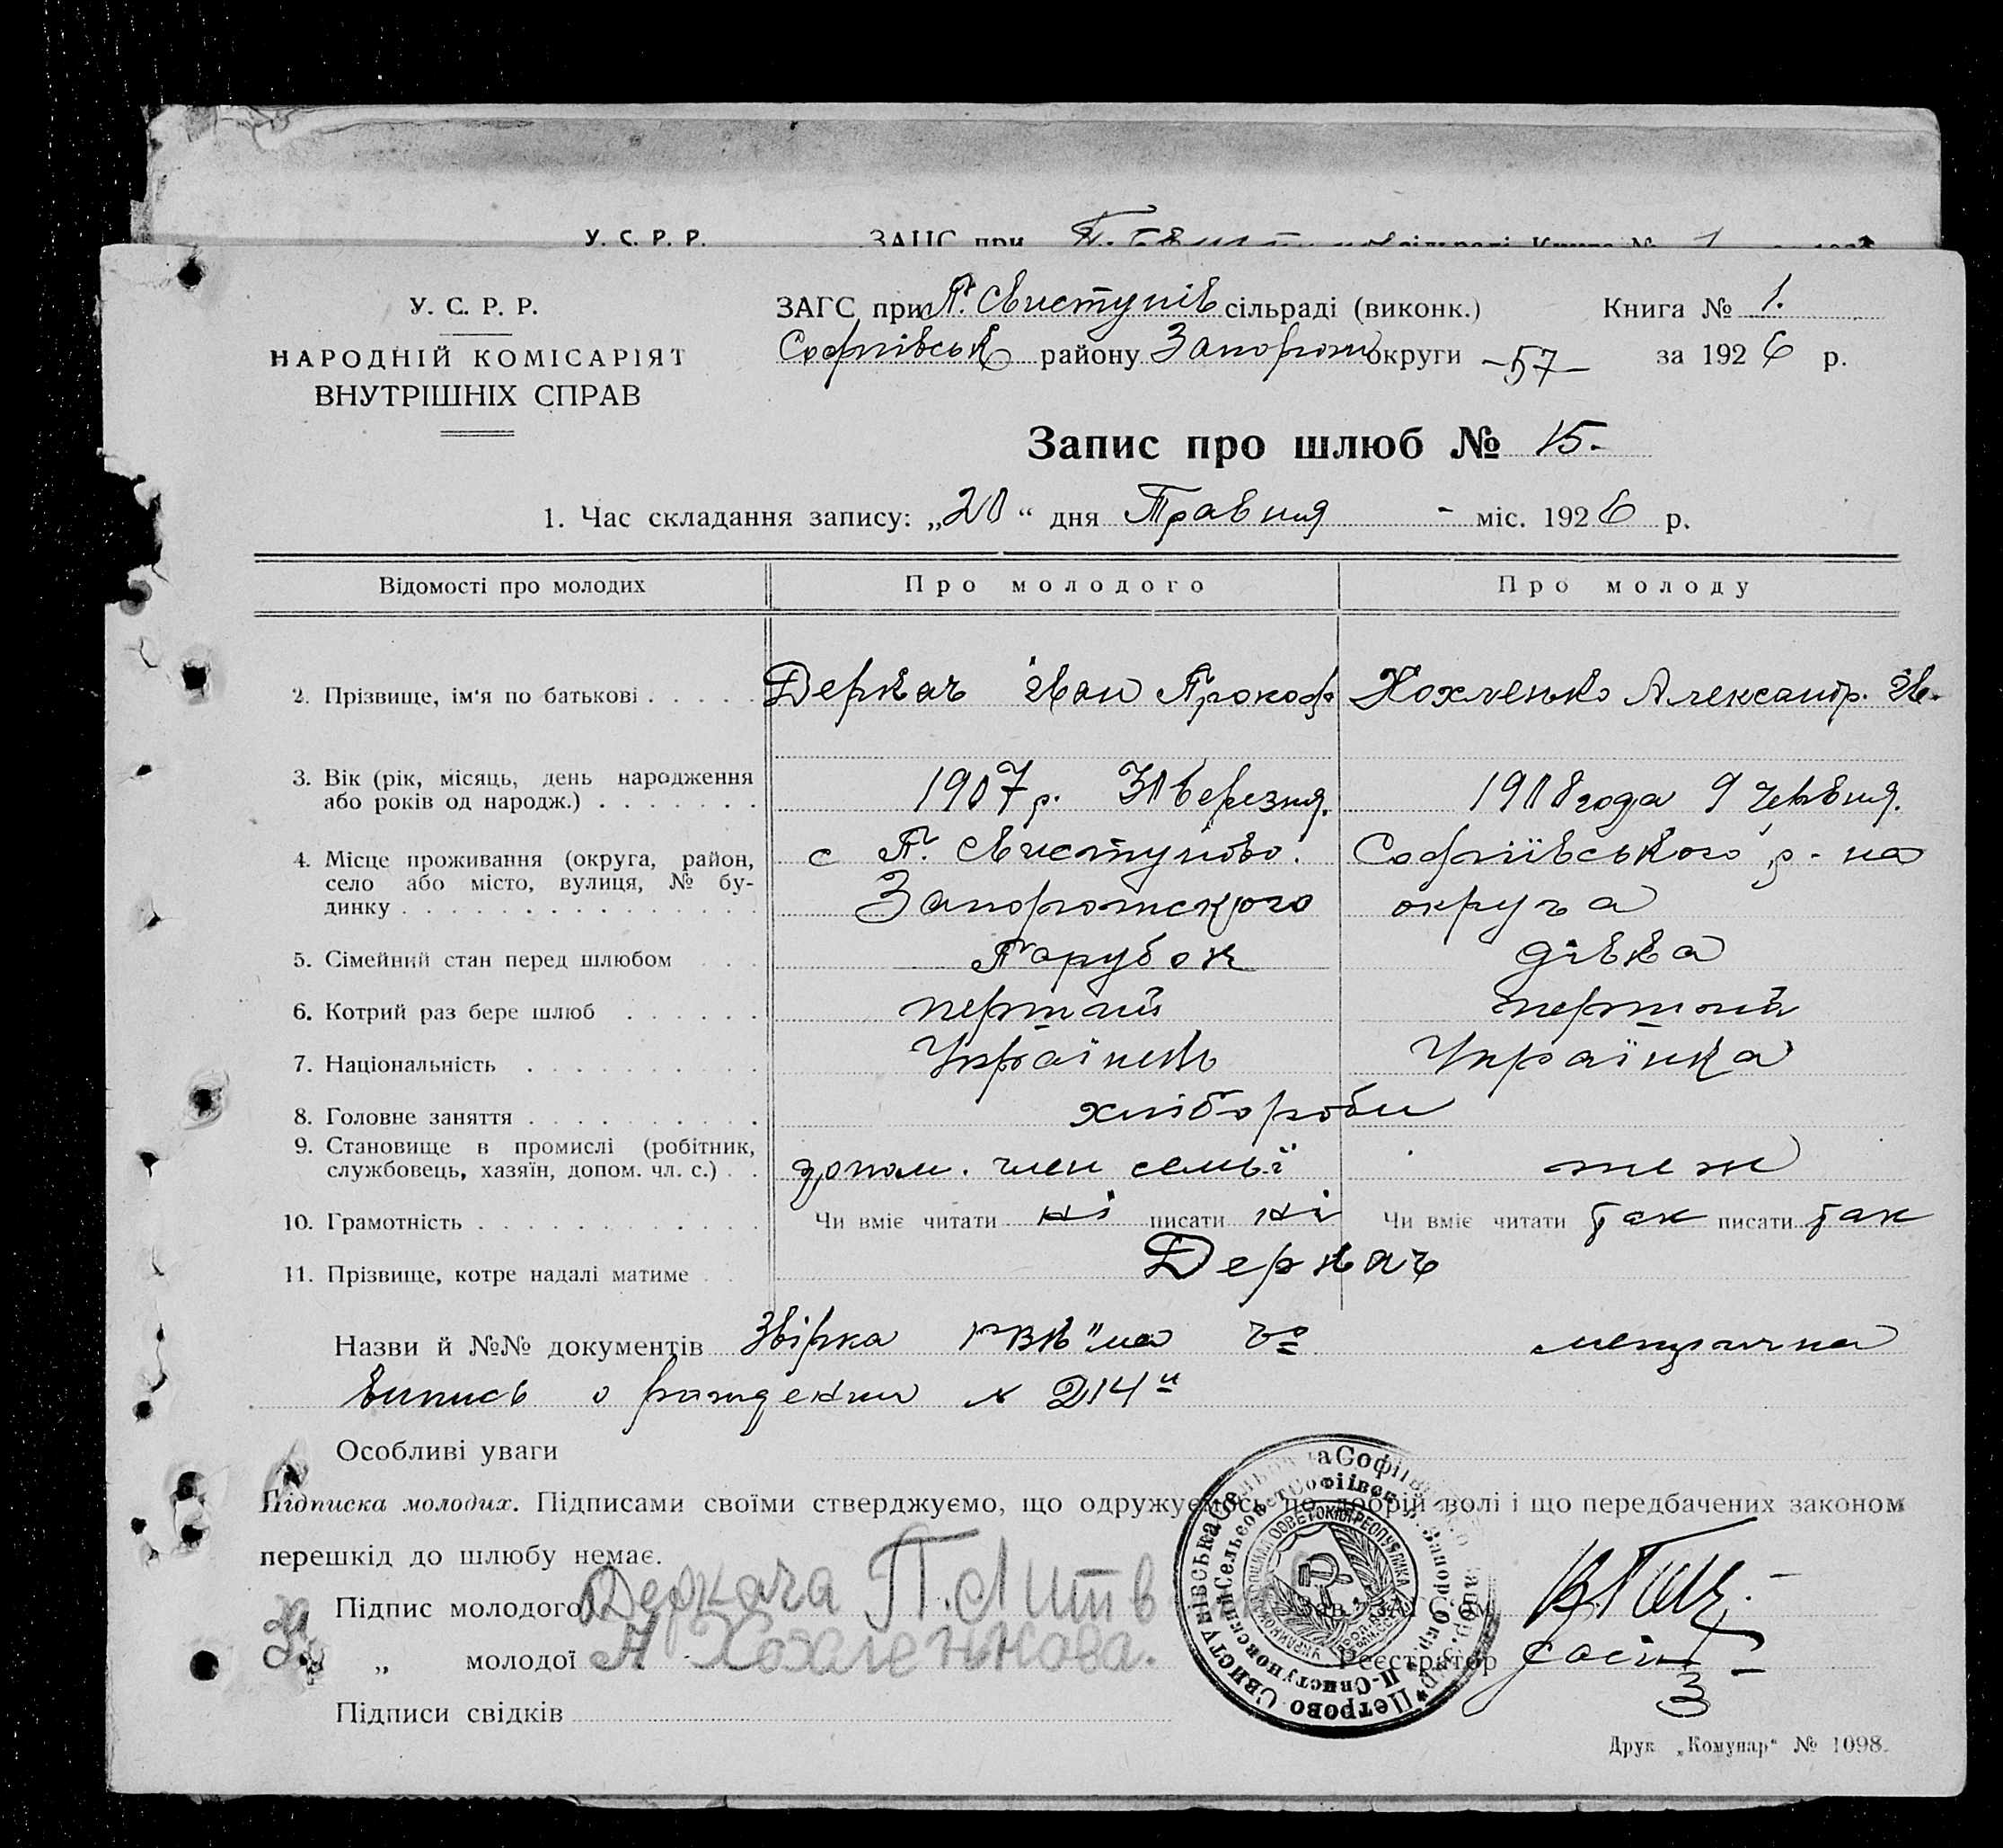 У. С. Р. Р. ЗАГС при
У. С. Р. Р.
НАРОДНІЙ КОМІСАРІЯТ
ВНУТРІШНІХ СПРАВ
ЗАГС при П. Свистунів сільраді (виконк.) Книга № 1.
Софіївськ району Запорож округи -57- за 1926 р.
Запис про шлюб № 15.
1. Час складання запису: „20“ дня Травня - міс. 1926 р.
Відомості про молодих Про молодого Про молоду
2. Прізвище, ім'я по батькові Деркач Іван Прокоф. Хохленько Александр. Ів.
3. Вік (рік, місяць, день народження
або років од народж.) 1907 р. 30 березня. 1908 года 9 червня.
4. Місце проживання (округа, район, с П. Свистуново. Софіївського р-на
село або місто, вулиця, № бу-
динку Запорожского округа
5. Сімейний стан перед шлюбом Парубок дівка
6. Котрий раз бере шлюб перший перший
7. Національність Українець Українка
8. Головне заняття хлібороби
9. Становище в промислі (робітник,
службовець, хазяїн, допом. чл. с.) допом. член семьї теж
10. Грамотність Чи вміє читати ні писати ні Чи вміє читати так писати так
11. Прізвище, котре надалі матиме Деркач
Назви й №№ документів Звірка РВК
Випись о рождении № 214
Особливі уваги
Підписка молодих. Підписами своїми стверджуємо, що одружуємось по добрій волі і що передбачених законом
перешкід до шлюбу немає.
Підпис молодого Деркача П. Литв Зав. ЗАГС'ом
„ молодої А Хохленкова. Реєстратор
3
Підписи свідків
Друк „Комунар“ № 1098.